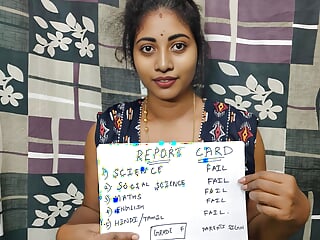 REPORT CARD
1) SCIENCE FAIL
2) SOCIAL SCIENCE FAIL
3) MATHS FAIL
4) ENGLISH FAIL
5) HINDI/TAMIL FAIL.
GRADE F PARENTS SIGN